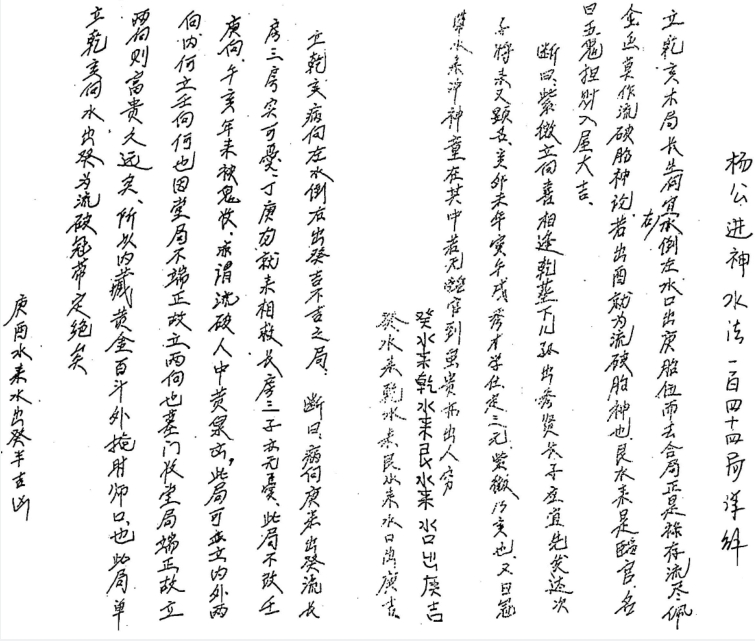 杨公进神水法一百四十四局详解
立乾亥木局长生向宜右水倒左水口出庚胎位而去合局正是禄存流尽佩
金鱼莫作流破胎神论若出酉就为流破胎神也艮水来是临官名
曰五鬼担财入屋大吉、
断曰、紫微立向喜相逢乾甚下儿孙出秀贤长子应宜先发达次
子将来又显长亥卯未年寅午戌秀才学仕定三元紫微乃亥也又曰冠
带水来冲神童在其中若无临官到虽贵亦出人穷
癸水来乾水来艮水来水口出庚吉
癸水来乾水来艮水来水口出庚吉
立乾亥病向左水倒右出癸吉不吉之局、断曰、病向庚若出癸流长
房三房实可忧、丁庚方就来相救长房三子亦无忧、此局不改壬
庚向、午亥年来被鬼收、求谓流破人中黄泉凶、此局可立内外两
向、内向立壬向何也因堂局不端正故立两向也墓门收堂局端正故立
两向则富贵久远矣、所以内藏黄金百斗外掩肘师口也此局单
立乾亥向水出癸为流破冠带定绝矣
庚丙水来水出癸半吉凶